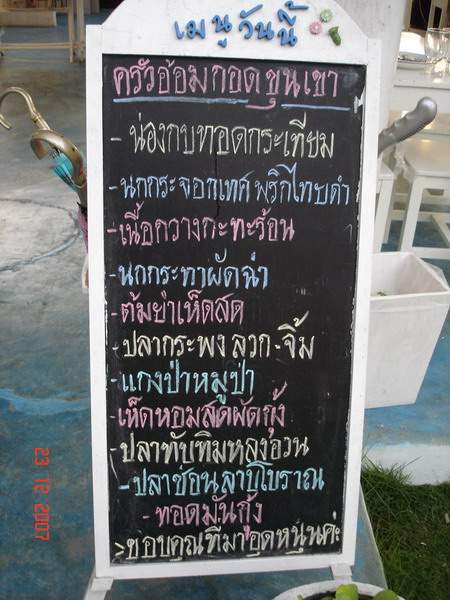 เมนูวันนี้
ครัวอ้อมกอดขุนเขา
- น่องกบทอดกระเทียม
- นกกระจอกเทศ พริกไทยดำ
- เนื้อกวางกะทะร้อน
- นกกระทาผัดฉ่า
- ต้มยำเห็ดสด
- ปลากระพง ลวก - จิ้ม
- แกงป่าหมูป่า
- เห็ดหอมสดผัดกุ้ง
- ปลาทับทิมหลงอ้วน
- ปลาช่อนลาบโบราณ
- ทอดมันกุ้ง
> ขอบคุณที่มาอุดหนุนค่ะ
23 12 2007